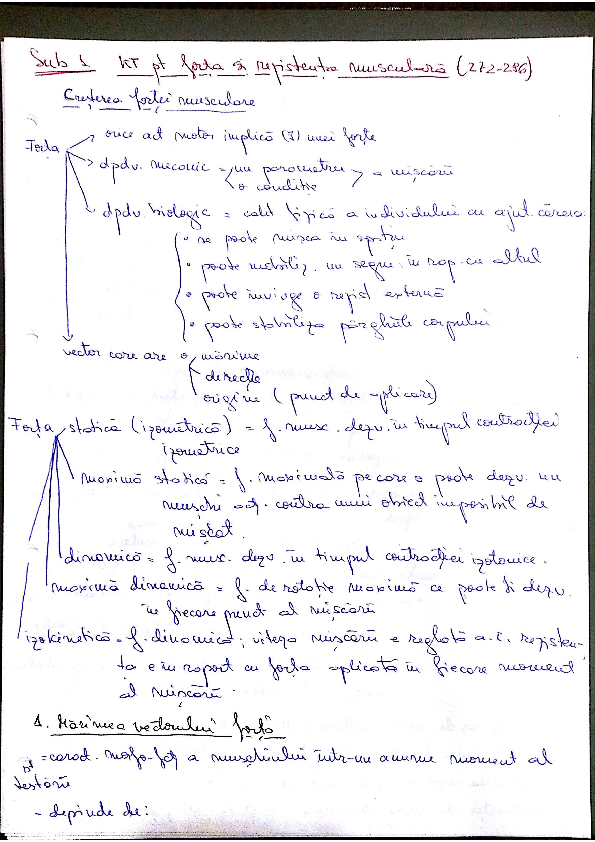 Sub 1 KT pt forța și rezistența musculară (272-286)
Creșterea forței musculare
Forța orice act motor implică (I) unei forțe
dpdv. mecanic = un parametru = mișcării
o condiție
dpdv. biologic = calit fizică a individului cu ajut. căreia:
• se poate mișca în spațiu
• poate mobiliz. un segm. în rap. cu altul
• poate învinge o rezist externă
• poate stabiliza pârghiile corpului
vector care are o mărime
direcție
origine (punct de aplicare)
Forța statică (izometrică) = f. musc. dezv. în timpul contracției
izometrice
maximă statică = f. maximală pe care o poate dezv. un
mușchi contra unui obiect imposibil de
mișcat.
dinamică = f. musc. dezv. în timpul contracției izotonice.
maximă dinamică = f. de rotație maximă ce poate fi dezv.
în fiecare punct al mișcării
izokinetică = f. dinamică; viteza mișcării e reglată a.î. rezisten-
ța e în raport cu forța aplicată în fiecare moment
al mișcării.
1. Mărimea vectorului forță
= caract. morfo-fcț a mușchiului într-un anume moment al
testării
- depinde de: